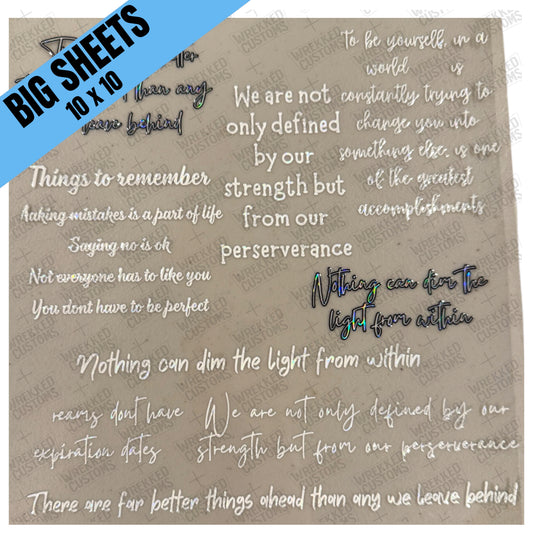 BIG SHEETS
10 X 10
than any
leave behind
We are not
only defined
by our
strength but
from our
perserverance
To be yourself, in a
world is
constantly trying to
change you into
something else, is one
of the greatest
accomplishments
Things to remember
Making mistakes is a part of life
Saying no is ok
Not everyone has to like you
You dont have to be perfect
Nothing can dim the
light from within
Nothing can dim the light from within
reams dont have
expiration dates
We are not only defined by our
strength but from our perserverance
There are far better things ahead than any we leave behind
WREKKED
CUSTOMS